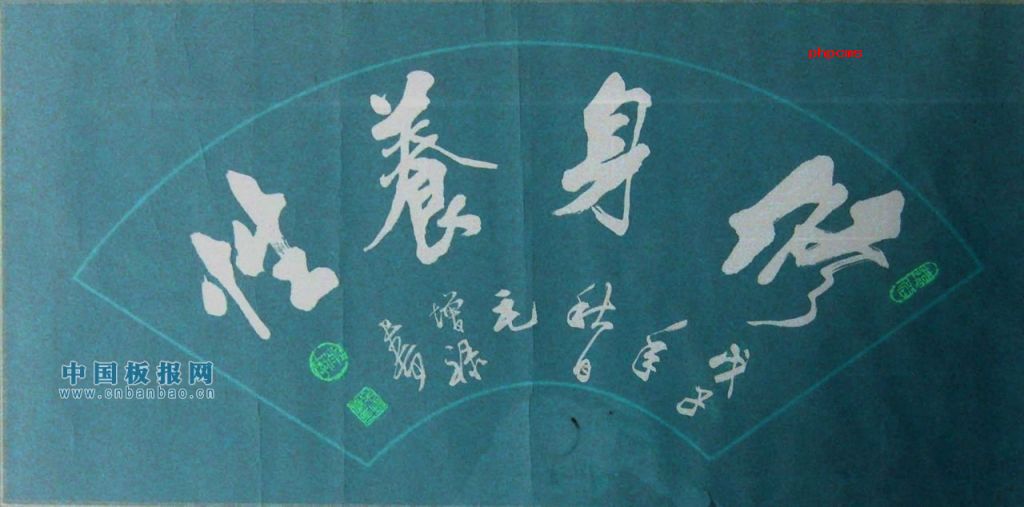 修身養性
戊子年秋日毛增禄書
中国板报网
www.cnbanbao.cn
phpcms